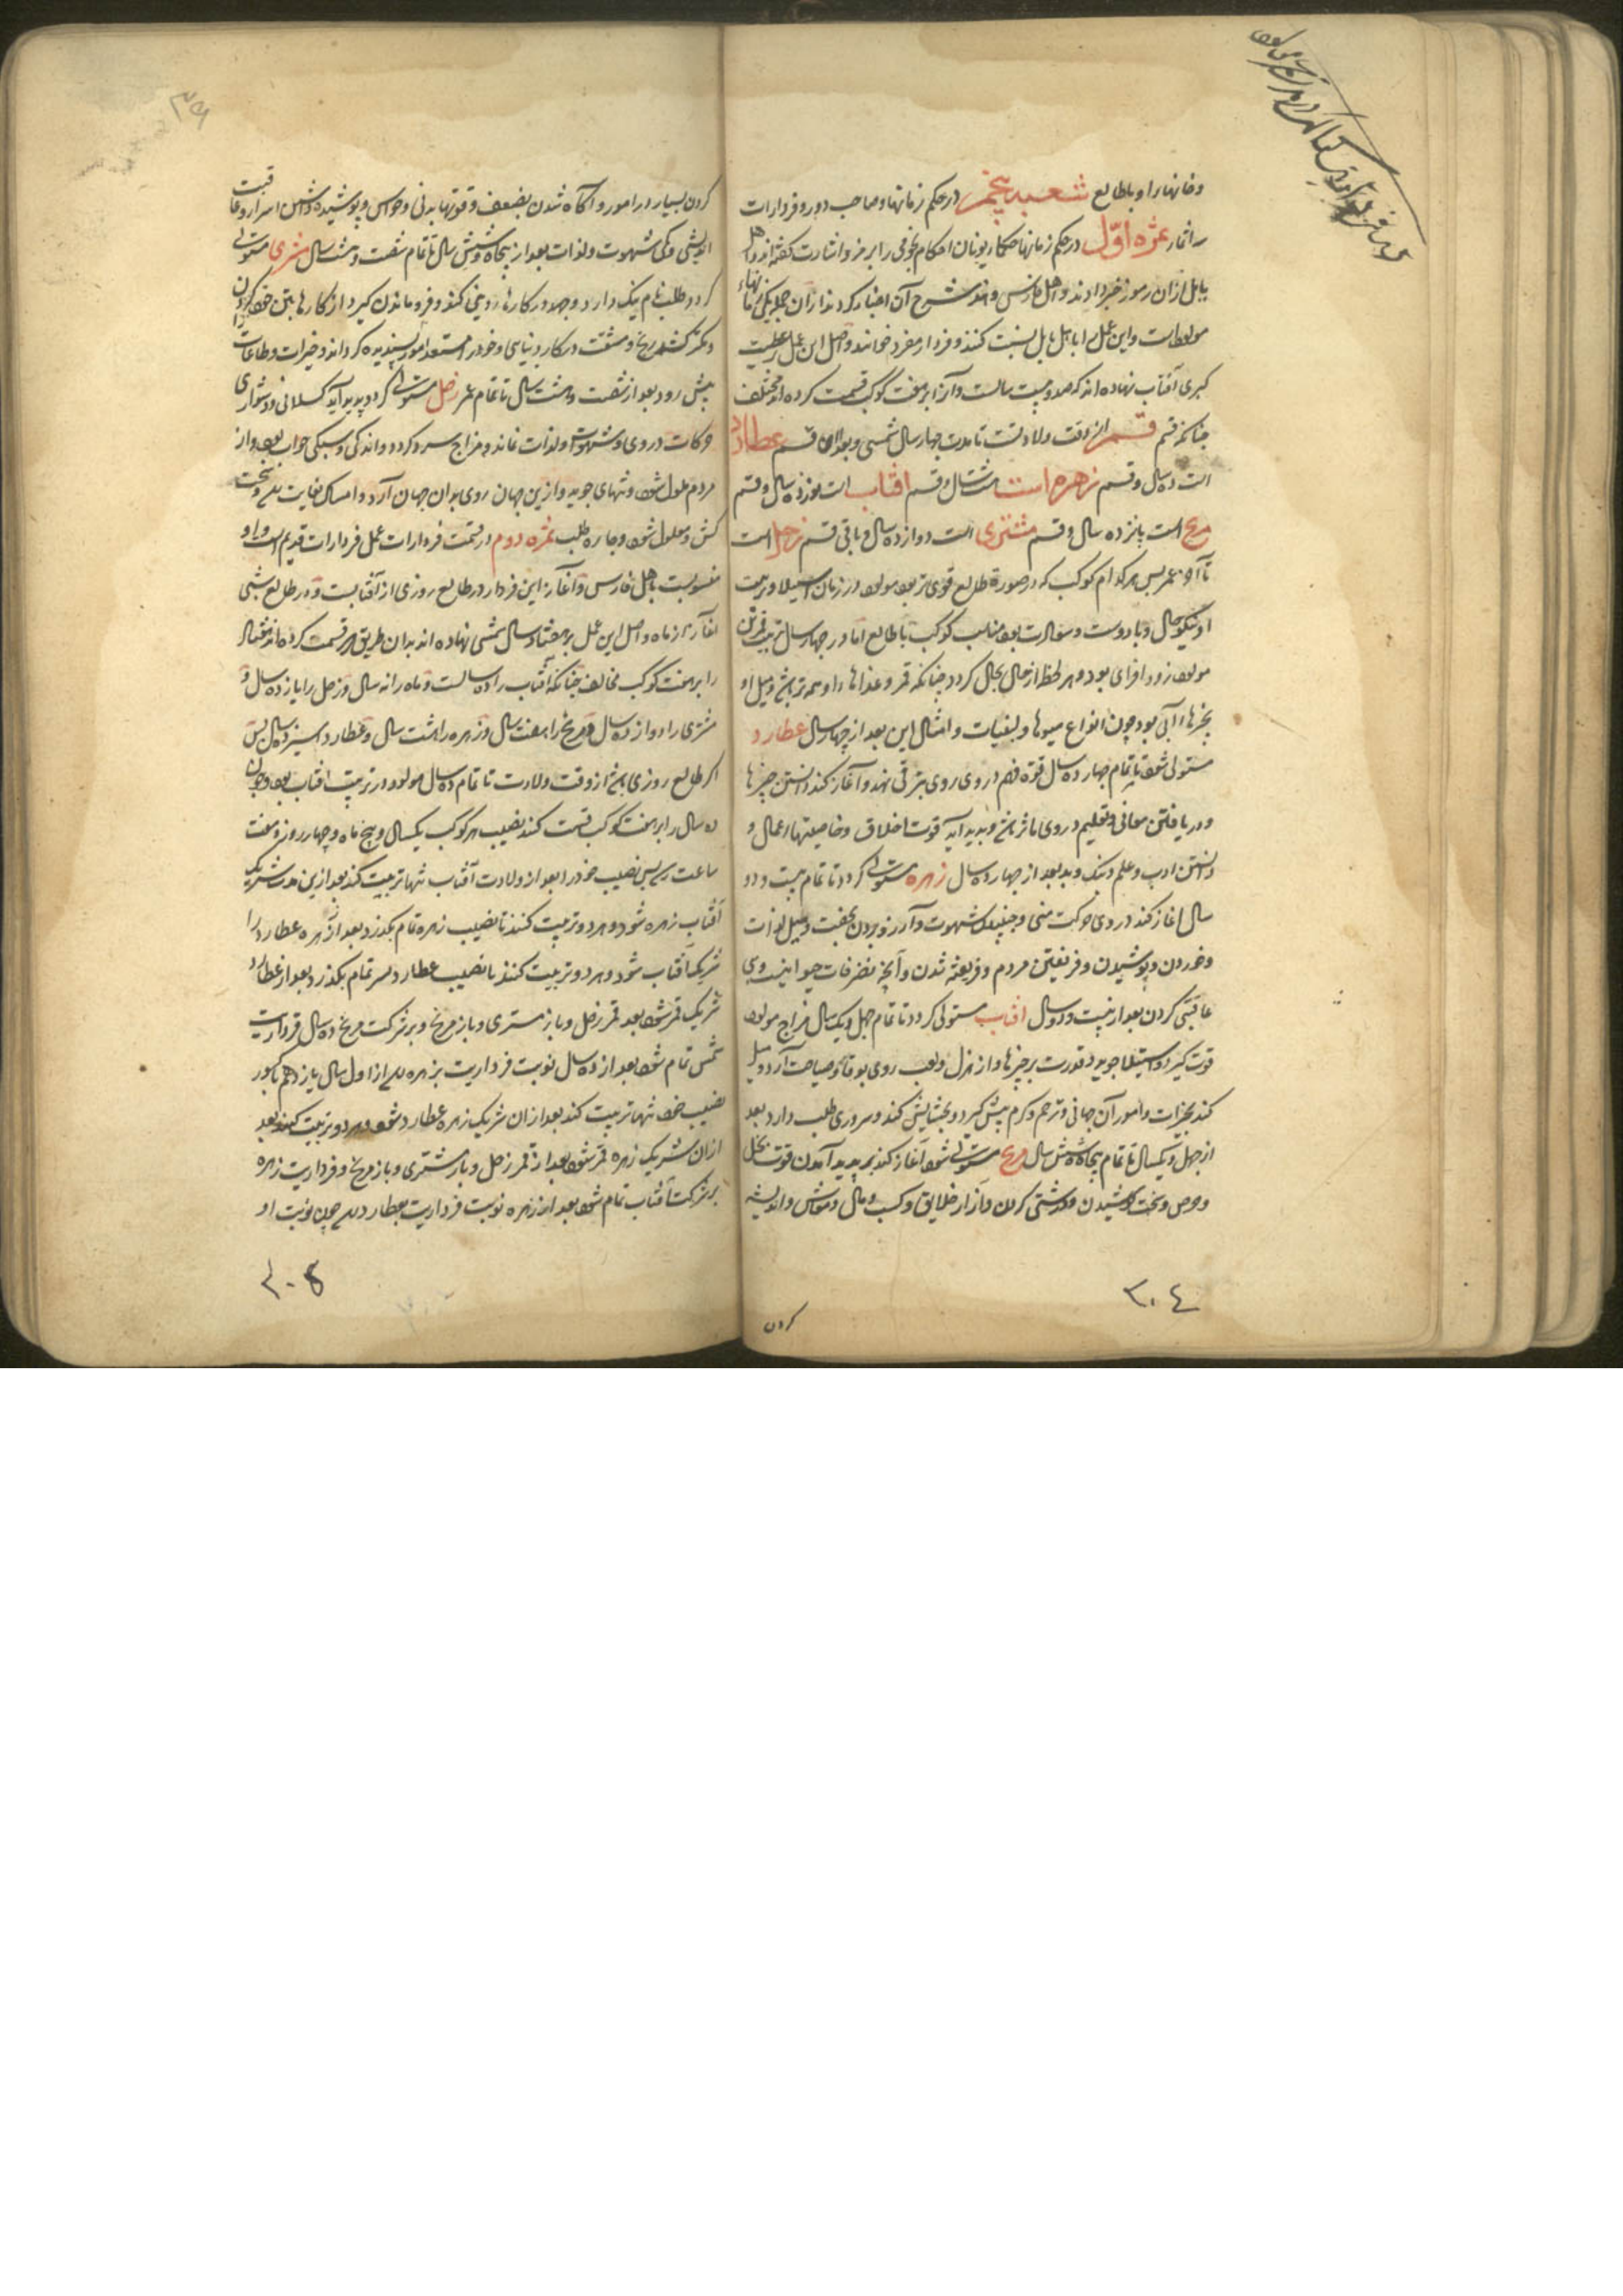 وخانها را و باطالع شعبه پنجم در حکم زمانها و صاحب دور و فردارات
سه اثمار ثمره اوّل در حکم زمانها حکماء یونان احکام نجومی را برمز و اشارت گفته اند و اهل
بابل ازان رموز خبر دادند و اهل فارس و هند شرح آن اعتبار کردند ازان جمله یکی زمانهاء
مولودست و این عمل را باهل بابل نسبت کنند و فردار مفرد خوانند و اصل این عمل بر عطیت
کبری آفتاب نهاده اند که صد و بیست سالست و آنرا بر هفت کوکب قسمت کرده اند مختلف
چنانکه قسم قمر از وقت ولادتست تا مدت چهار سال شمسی و بعد ازان قسم عطارد
است ده سال و قسم زهره است هشت سال و قسم آفتاب است نوزده سال و قسم
مریخ است پانزده سال و قسم مشتری است دوازده سال و باقی قسم زحل است
تا آخر عمر پس هر کدام کوکب که در صورة طالع قوی تر بود مولود در زمان استیلا و تربیت
او نیکو حال و بادوست و سعادت بود مناسب کوکب با طالع اما در چهار سال تربیت قمر تن
مولود زود افزای بود و هر لحظه از حال بحال گردد چنانکه قمر و غذاها را و همه تر باشد و میل او
بچیزهاء آبی بود چون انواع میوها و لبنیات و امثال این بعد از چهار سال عطارد
مستولی شود تا تمام چهارده سال قوة فهم در وی روی بترقی نهد و آغاز کند دانستن چیزها
و دریافتن معانی و تعلیم در وی با اثر باشد و پدید آید قوت اخلاق و خاصیتها اعمال و
دانستن ادب و علم و نیک و بد بعد از چهارده سال زهره مستولی گردد تا تمام بیست و دو
سال اغاز کند در وی حرکت منی و جنبیدن شهوت و آرزو بردن بجفت و میل لذات
و خوردن و پوشیدن و فریفتن مردم و فریفته شدن و آنچه تصرفات حیوانیست و بی
عاقبتی کردن بعد از بیست و دو سال افتاب مستولی گردد تا تمام چهل و یکسال مزاج مولود
قوت گیرد و استیلا جوید و قدرت بر چیزها و از هزل و لعب روی بوقار و صیاحت آرد و میل
کند بخیرات و امور آن جهانی و ترحم و کرم پیش گیرد و بخشایش کند و سروری طلب دارد بعد
از چهل و یکسال تا تمام پنجاه و شش سال مریخ مستولی شود آغاز کند پدید آمدن قوت بخل
و حرص و سخت کوشیدن و درشتی کردن و آزار خلایق و کسب و مال و معاش و اندیشه
کردن
٣٠٤
کردن بسیار در امور و آگاه شدن بضعف و قوتها بدنی و حواس و پوشیده داشتن اسرار و عاقبت
اندیشی و کمی شهوت و لذات بعد از پنجاه و شش سال تا تمام شصت و هشت سال مشتری مستولی
گردد طلب نام نیک دارد و جهد در کارهاء دینی کند و فرو ماندن گیرد از کارها بتن خود کردن
و کمتر کشد رنج و مشقت در کار دنیایی و خود را مستعد امور پسندیده گرداند و خیرات و طاعات را
پیش رود بعد از شصت و هشت سال تا تمام عمر زحل مستولی گردد پدید آید کسلانی و دشواری
حرکات در وی و شهوت و لذات نماند و مزاج سرد گردد و اندکی و سبکی خواب بود و از
مردم ملول شود و تنهای جوید و ازین جهان روی بدان جهان آرد و امساک بغایت بلی و سخت
کش و معلول شود و چاره طلب ثمره دوم در قسمت فردارات عمل فردارات قدیم است و او
منسوبست باهل فارس و آغاز این فردار در طالع روزی از آفتابست و در طالع شبی
آغاز از ماه و اصل این عمل بر هفتاد سال شمسی نهاده اند بدان طریق هم قسمت کرده اند هفتاد سال
را بر هفت کوکب مخالف چنانکه آفتاب را ده سالست و ماه را نه سال و زحل را یازده سال و
مشتری را دوازده سال و مریخ را هفت سال و زهره را هشت سال و عطارد سیزده سال پس
اگر طالع روزی باشد از وقت ولادت تا تمام ده سال مولود در تربیت افتاب بود و چون
ده سال را بر هفت کوکب قسمت کند نصیب هر کوکب یکسال و پنج ماه و چهار روز و هفت
ساعت رسد پس نصیب خود را بعد از ولادت آفتاب تنها تربیت کند بعد ازین مدت شریک
آفتاب زهره شود و هر دو تربیت کنند تا نصیب زهره تمام بگذرد بعد از زهره عطارد را
شریک آفتاب شود و هر دو تربیت کنند تا نصیب عطارد بسر تمام بگذرد بعد از عطارد
شریک قمر شود بعد قمر زحل و باز مشتری و باز مریخ و بر شرکت مریخ ده سال فرداریت
شمس تمام شود بعد از ده سال نوبت فرداریت بزهره رسد از اول سال یازدهم تا کور
نصیب خود تنها تربیت کند بعد ازان شریک زهره عطارد شود و هر دو تربیت کنند بعد
ازان شریک زهره قمر شود بعد از قمر زحل و باز مشتری و باز مریخ و فرداریت زهره
بر شرکت آفتاب تمام شود بعد از زهره نوبت فرداریت بعطارد رسد چون نوبت او
٣٠٥